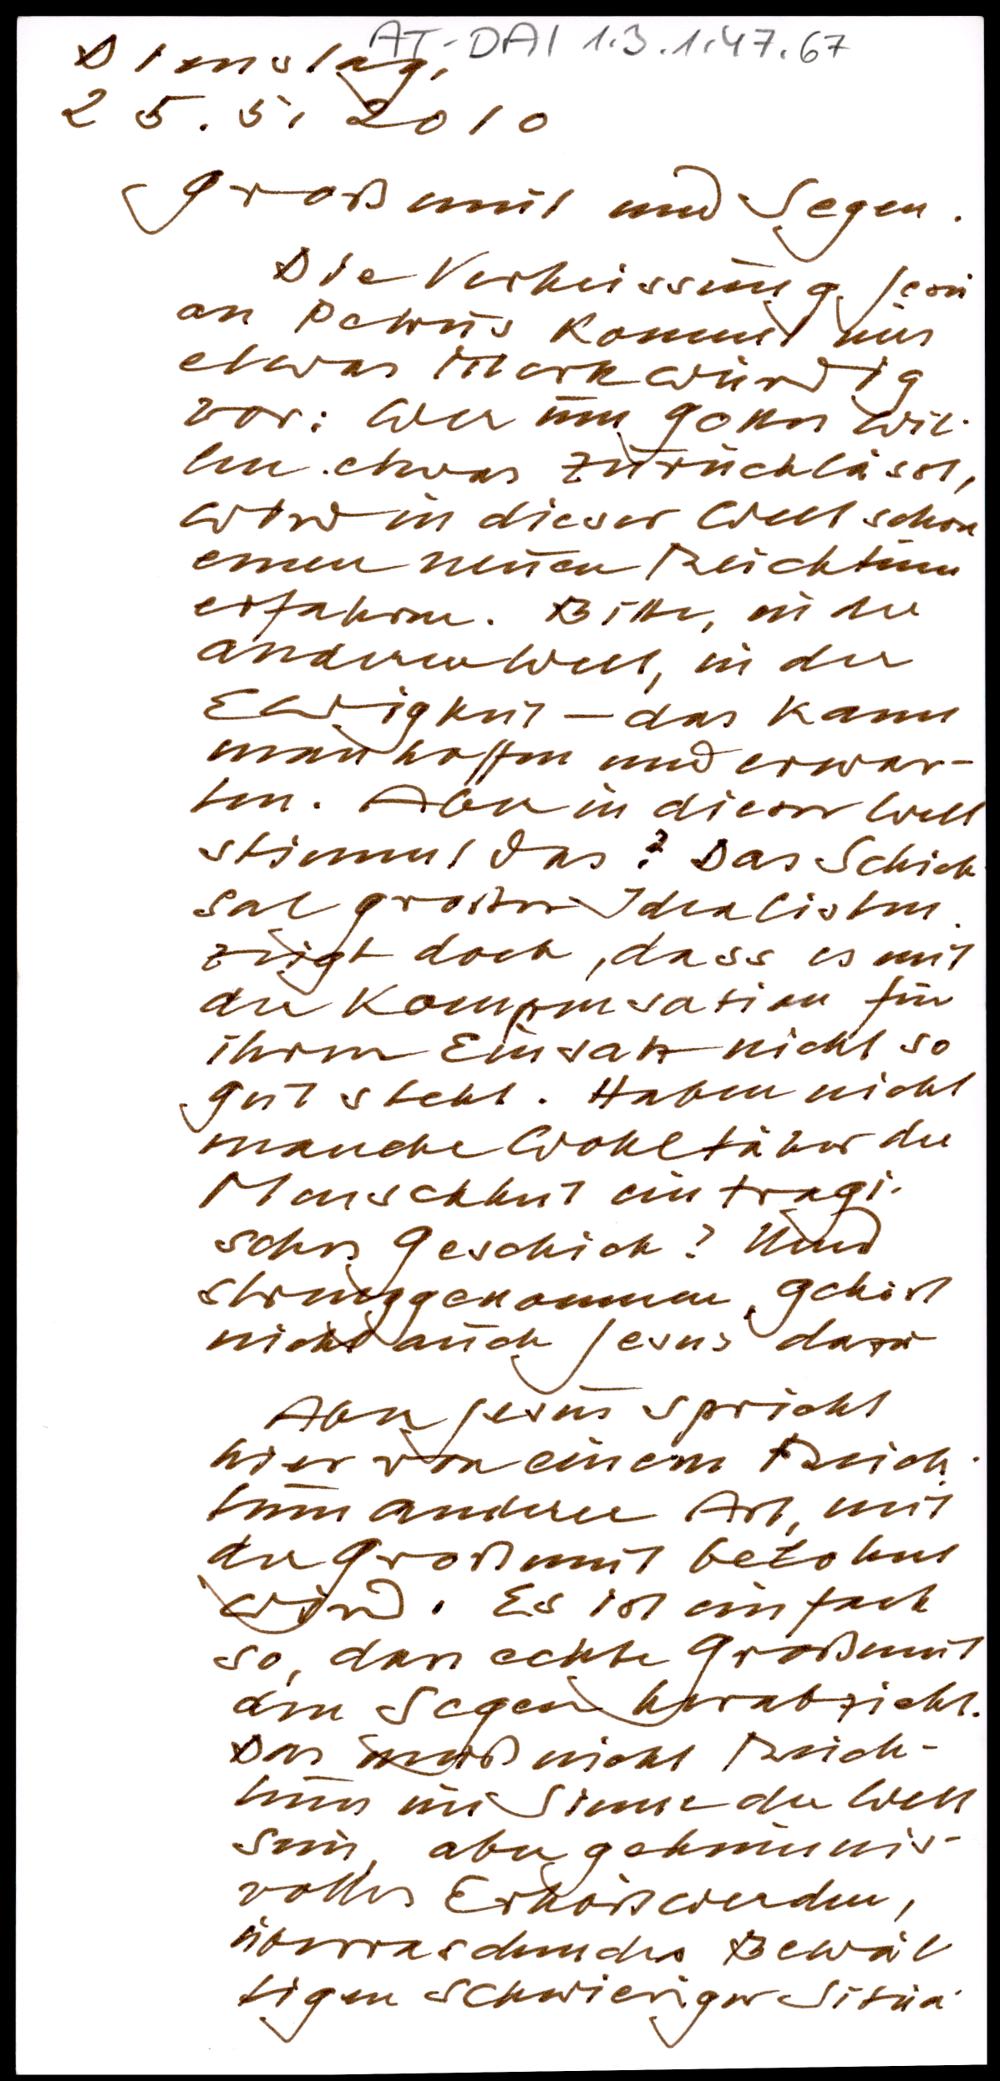 AT-DAI 1.3.1.47.67
Dienstag,
25.5.2010
Großmut und Segen.
Die Verheissung Jesu
an Petrus kommt mir
etwas merkwürdig
vor: Wer um Gottes Wil-
len etwas zurücklässt,
wird in dieser Welt schon
einen neuen Reichtum
erfahren. Bitte, in der
anderen Welt, in der
Ewigkeit – das kann
man hoffen und erwar-
ten. Aber in dieser Welt
stimmt das? Das Schick-
sal grosser Idealisten
zeigt doch, dass es mit
der Kompensation für
ihren Einsatz nicht so
gut steht. Haben nicht
manche Wohltäter der
Menschheit ein tragi-
sches Geschick? Und
strenggenommen, gehört
nicht auch Jesus dazu
Aber Jesus spricht
hier von einem Reich-
tum anderer Art, mit
der Großmut belohnt
wird. Es ist einfach
so, dass echte Großmut
den Segen herabzieht.
Das muß nicht Reich-
tum im Sinne der Welt
sein, aber geheimnis-
volles Erhörtwerden,
überraschendes Bewäl
tigen schwieriger Situa-